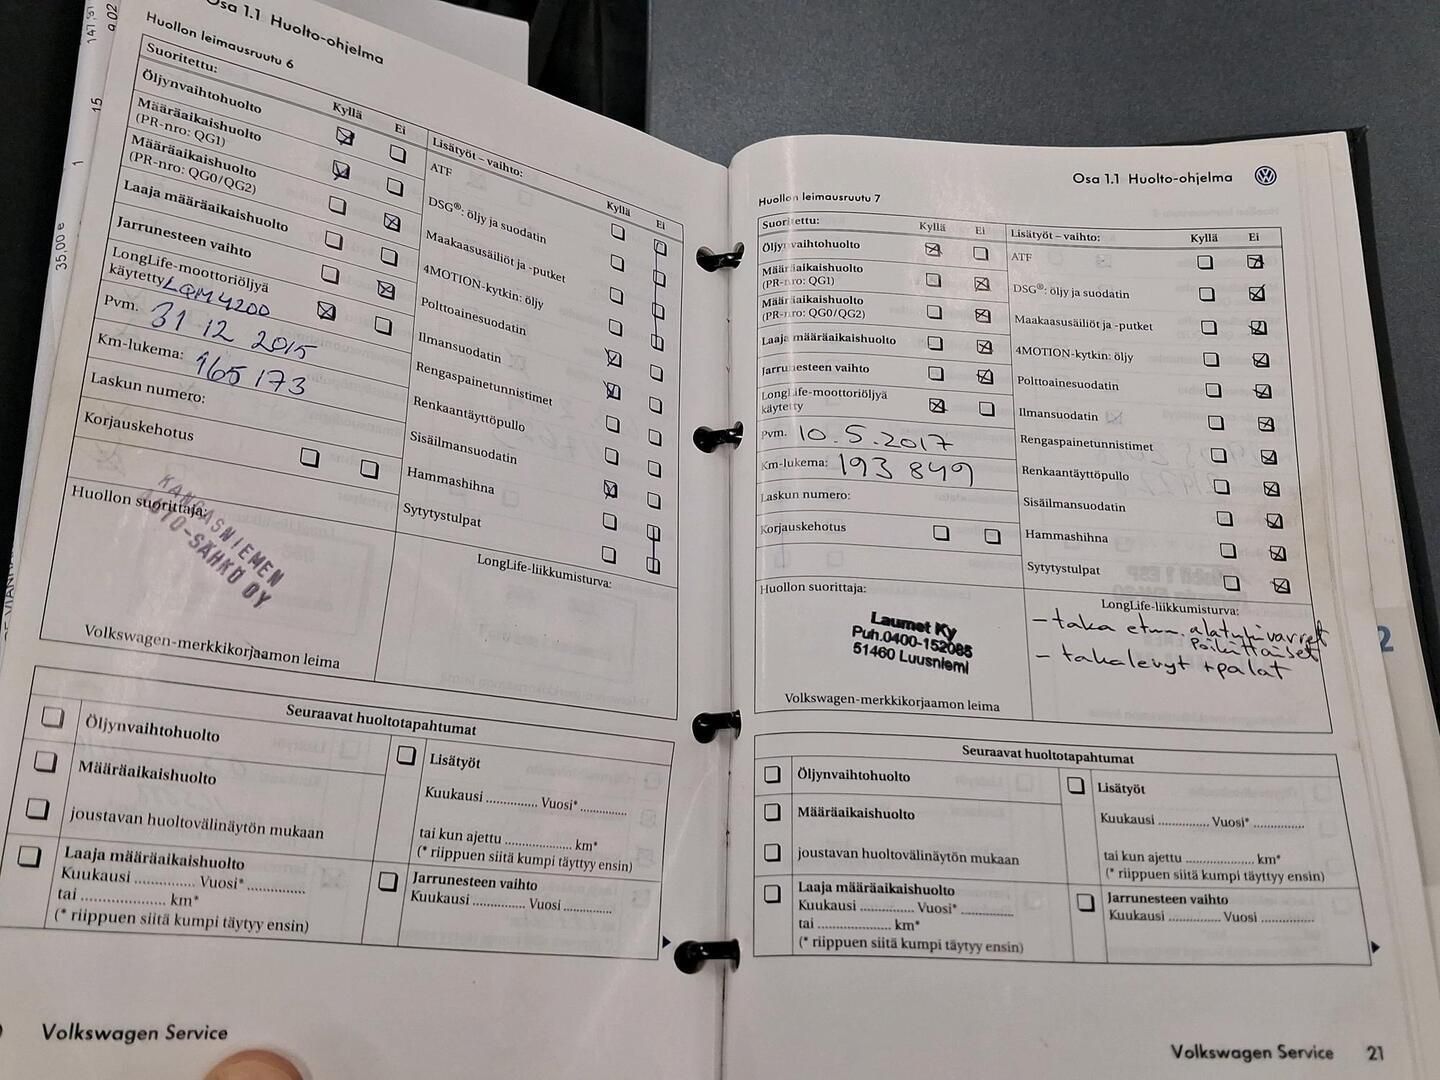 Osa 1.1 Huolto-ohjelma
Huollon leimausruutu 6
Suoritettu:
Kyllä
Ei
Öljynvaihtohuolto
Määräaikaishuolto
(PR-nro: QG1)
Määräaikaishuolto
(PR-nro: QG0/QG2)
Laaja määräaikaishuolto
Jarrunesteen vaihto
LongLife-moottoriöljyä
käytetty LQM 4200
Pvm. 31 12 2015
Km-lukema: 165 173
Laskun numero:
Korjauskehotus
Huollon suorittaja:
KANGASNIEMEN
AUTO-SÄHKÖ OY
Volkswagen-merkkikorjaamon leima
Lisätyöt – vaihto:
Kyllä
Ei
ATF
DSG®: öljy ja suodatin
Maakaasusäiliöt ja -putket
4MOTION-kytkin: öljy
Polttoainesuodatin
Ilmansuodatin
Rengaspainetunnistimet
Renkaantäyttöpullo
Sisäilmansuodatin
Hammashihna
Sytytystulpat
LongLife-liikkumisturva:
Seuraavat huoltotapahtumat
Öljynvaihtohuolto
Määräaikaishuolto
joustavan huoltovälinäytön mukaan
Laaja määräaikaishuolto
Kuukausi ............... Vuosi* ..............
tai ..................... km*
(* riippuen siitä kumpi täytyy ensin)
Lisätyöt
Kuukausi .............. Vuosi* ............
tai kun ajettu .................... km*
(* riippuen siitä kumpi täyttyy ensin)
Jarrunesteen vaihto
Kuukausi .............. Vuosi .............
Volkswagen Service
Osa 1.1 Huolto-ohjelma
Huollon leimausruutu 7
Suoritettu:
Kyllä
Ei
Öljynvaihtohuolto
Määräaikaishuolto
(PR-nro: QG1)
Määräaikaishuolto
(PR-nro: QG0/QG2)
Laaja määräaikaishuolto
Jarrunesteen vaihto
LongLife-moottoriöljyä
käytetty
Pvm. 10.5.2017
Km-lukema: 193 849
Laskun numero:
Korjauskehotus
Huollon suorittaja:
Laumet Ky
Puh.0400-152085
51460 Luusniemi
Volkswagen-merkkikorjaamon leima
Lisätyöt – vaihto:
Kyllä
Ei
ATF
DSG®: öljy ja suodatin
Maakaasusäiliöt ja -putket
4MOTION-kytkin: öljy
Polttoainesuodatin
Ilmansuodatin
Rengaspainetunnistimet
Renkaantäyttöpullo
Sisäilmansuodatin
Hammashihna
Sytytystulpat
LongLife-liikkumisturva:
- taka etum. alatukivarret
poikittaiset
- takalevyt + palat
Seuraavat huoltotapahtumat
Öljynvaihtohuolto
Määräaikaishuolto
joustavan huoltovälinäytön mukaan
Laaja määräaikaishuolto
Kuukausi .............. Vuosi* ..............
tai ..................... km*
(* riippuen siitä kumpi täytyy ensin)
Lisätyöt
Kuukausi .............. Vuosi* ..............
tai kun ajettu .................... km*
(* riippuen siitä kumpi täyttyy ensin)
Jarrunesteen vaihto
Kuukausi .............. Vuosi ..............
Volkswagen Service 21
35,00 e
1
15
2